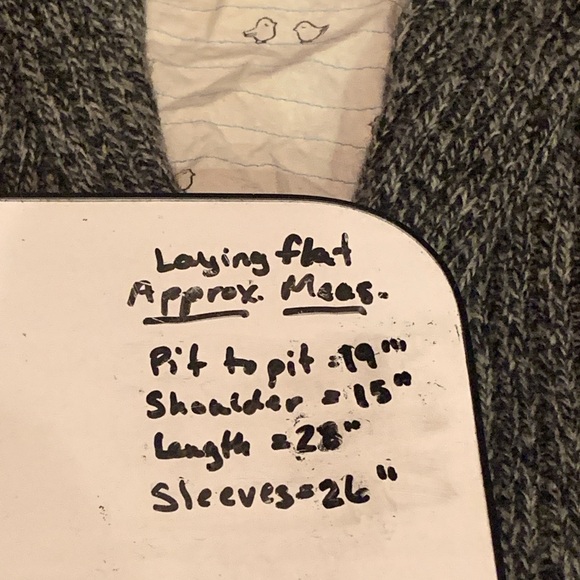 Laying flat
Approx. Meas.
Pit to pit = 19"
Shoulder = 15"
Length = 28"
Sleeves = 26"